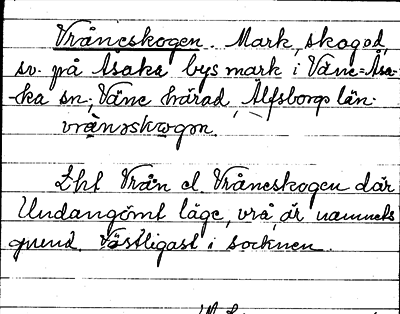 Vråneskogen. Mark, skogod,
sv. på Åsaka bys mark i Väne=Åsa-
ka sn; Väne härad, Älfsborgs län.
vrånəskωgən.
Eht Vrån el. Vråneskogen där
Undangömt läge, vrå, är namnets
grund. Västligast i socknen.